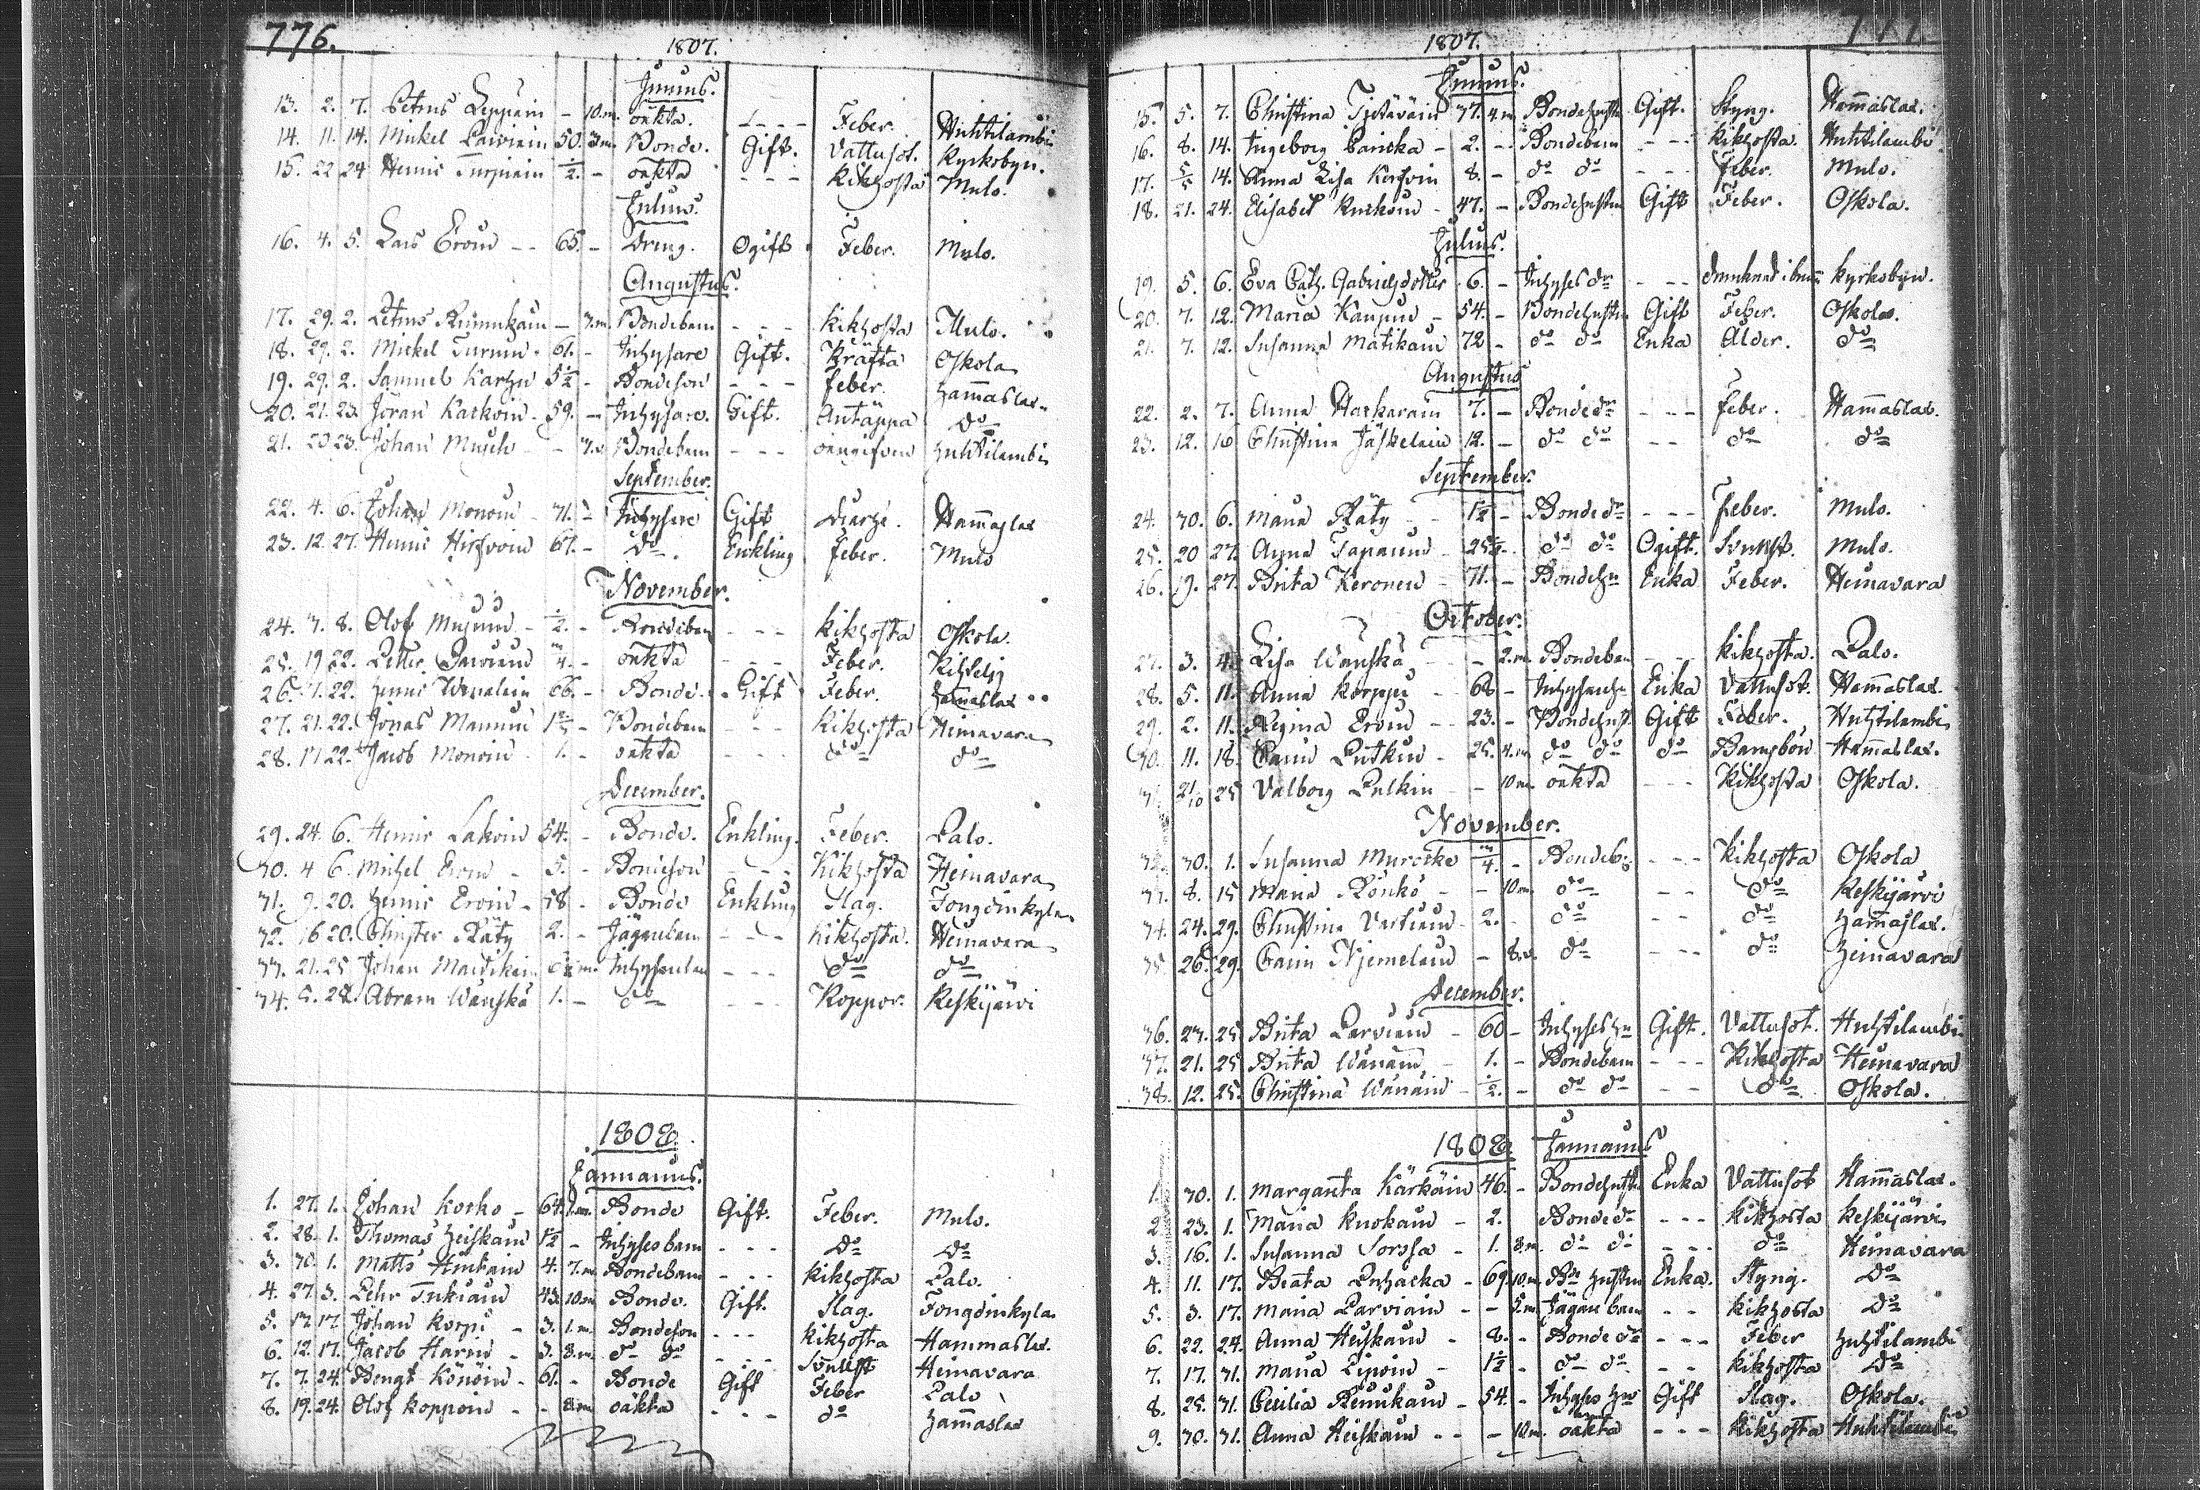 776.
1807.
Junius.
13. 2. 7. Petrus Leppäin - 10.m. oäkta. - - - Feber. Huhtilambi
14. 11. 14. Mickel Parviain 50. 3.m. Bonde. Gift. Vattusot. Kyrkobyn.
15. 22 24 Henric Turpiain 1/2. - oäkta - - - Kikhosta Mulo.
Julius.
16. 4. 5. Lars Eroin - - 65. - Dreng. Ogift Feber. Mulo.
Augustus.
17. 29. 2. Petrus Rimmukain - 3.m. Bondebarn - - - Kikhosta Mulo.
18. 29. 2. Mickel Turuin - 61. - Inhysare Gift. Kräfta Oskola
19. 29. 2. Samuel Karhu 5 1/2 - Bondeson - - - feber. Hammaslax.
20. 21. 23. Jöran Karkoin - 59. - Inhysare. Gift. Antäppa Do
21. 20 23. Johan - - 3.v. Bondebarn - - - oangifven Huhtilambi
September.
22. 4. 6. Johan Monoin - 71. - Inhysare Gift Diarhe. Hammaslax
23. 12. 27. Henric Hirfvoin 67. - Do. Enkling feber. Mulo
November.
24. 3. 8. Olof Musuin - 1/2. - Bondebarn - - - Kikhosta Oskola.
25. 19 22. Petter Parviain m/4. - oäkta - - - Feber. Kihtelys
26. 7. 22. Henric 66. - Bonde. - Gift Feber. Hammaslax
27. 21. 22. Jonas Mannin - Bondebarn - - - Kikhosta Heinavara
28. 17 22. Jacob Monoin 1. - oäkta - - - do do
December.
29. 24. 6. Henric Lakoin 54. - Bonde. Enkling. Feber. Palo.
30. 4 6. Michel Eroin - 5. - Bondeson - - - Kikhosta Heinavara
31. 9. 20. Henric Eroin - 58 - Bonde Enkling Slag. Jongoinkylä
32. 16 20. Christer Räty 2. - Jägarebarn - - - Kikhosta. Heinavara
33. 21. 25 Johan m. Inhysesbarn - - - do do
34. 5. 28. Abram Wänskä 1. - do - - - Koppor. Keskijärvi
1808.
Januarius.
1. 27. 1. Johan Korho - 64. m. Bonde Gift. Feber. Mulo.
2. 28. 1. Thomas Heiskain 1 1/2 - Inhysesbarn - - - Do Do
3. 30. 1. Matts 4. 7.m. Bondebarn - - - Kikhosta Palo.
4. 27. 3. Pehr Tukiain 43. 10.m. Bonde. Gift. Slag. Jongoinkylä
5. 13. 17. Johan Korpi - 3. 1.m. Bondeson - - - Kikhosta Hammaslax.
6. 12. 17. Jacob Haroin - 3. 8.m. do do - - - Svulst Heinavara
7. 7. 24. Bengt Könöin - 61. - Bonde Gift Feber Palo
8. 19. 24. Olof Koppoin - - 8.m. oäkta - - - do Hammaslax
777.
1807.
Junius.
15. 5. 7. Christina 77. 4.m. Bondehustru Gift. Styng. Hammaslax.
16. 8. 14. Ingeborg - 2. - Bondebarn - - - Kikhosta Huhtilambi
17. 5/5 14. Anna Lisa Korfvin 8. - do do - - - Feber. Mulo.
18. 21. 24. Elisabet Kuckoin - 47. - Bondehustru Gift Feber. Oskola.
Julius.
19. 5. 6. Eva Cath. Gabrielsdotter 6. - Inhyses dr - - - Kyrkobyn.
20. 7. 12. Maria Kaupin - 54. - Bondehustru Gift Feber. Oskola.
21. 7. 12. Susanna Matikain 72 - do do Enka Ålder. do
Augustus
22. 2. 7. Anna Harkarain 7. - Bonde dr - - - feber. Hammaslax.
23. 12. 16 Christina Jäskelain 12. - do do - - do do
September.
24. 30. 6. Maria Räty - - 1 1/2 - Bonde dr - - - Feber. Mulo.
25. 20 27. Agna Tapanin - - do do Ogift. Svulst. Mulo.
26. 19. 27. Brita Keronen - 71. - Bondehu Enka Feber. Heinavara
October.
27. 3. 4. Lisa Wänskä - - - 2.m. Bondebarn - - Kikhosta. Palo.
28. 5. 11. Anna Korppi - 68 - Inhysarehu Enka Vattusot. Hammaslax.
29. 2. 11. Regina Eroin - - 23. - Bondehust. Gift Feber. Huhtilambi
30. 11. 18. Carin Putkin - 25. 4.m. do do do Barnsbörd Hammaslax.
31. 21/10 25 Valborg Pulkin - - 10 m. oäkta - - - Kikhosta Oskola.
November.
32. 30. 1. Susanna m/4. - Bondeb: - - - Kikhosta Oskola
33. 8. 15 Maria Rönkö - - 10.m. do - - do Keskijärvi
34. 24. 29. Christina Vartiain - 2. - do - - do Hammaslax.
35 26. 29. Carin Njemeläin - 8.v. do - - - do Heinavara
December.
36. 23. 25. Brita Parviain - 60 - Inhyseshu Gift. Vattusot. Huhtilambi
37. 21. 25 Brita Wänäin - 1. - Bondebarn - - - Kikhosta Heinavara
38. 12. 25. Christina Wänäin - 1/2. - do do - - do Oskola.
1808. Januarius
1. 30. 1. Margareta Kärkäin 46. - Bondehustru Enka Vattusot Hammaslax.
2. 23. 1. Maria Kuokain - 2. Bonde dr - - - Kikhosta Keskijärvi
3. 16. 1. Susanna Sorssa - 1. 8.m. do do - - - do Heinavara
4. 11. 17. Beata Puhacka - 69. 10.m. Bde hustru Enka. Styng. Do
5. 3. 17. Maria Parviain - - - 5.m. Jägarebarn - - Kikhosta do
6. 22. 24. Anna Heiskain - 8. - Bonde dr - - - Feber Huhtilambi
7. 17. 31. Maria Piproin - 1 1/2 - do do - - Kikhosta do
8. 25. 31. Cecilia Rimukain - 54. - Inhyses hu Gift Slag. Oskola.
9. 30. 31. Anna Heiskain - - - 10.m. oäkta - - - Kikhosta Huhtilambi